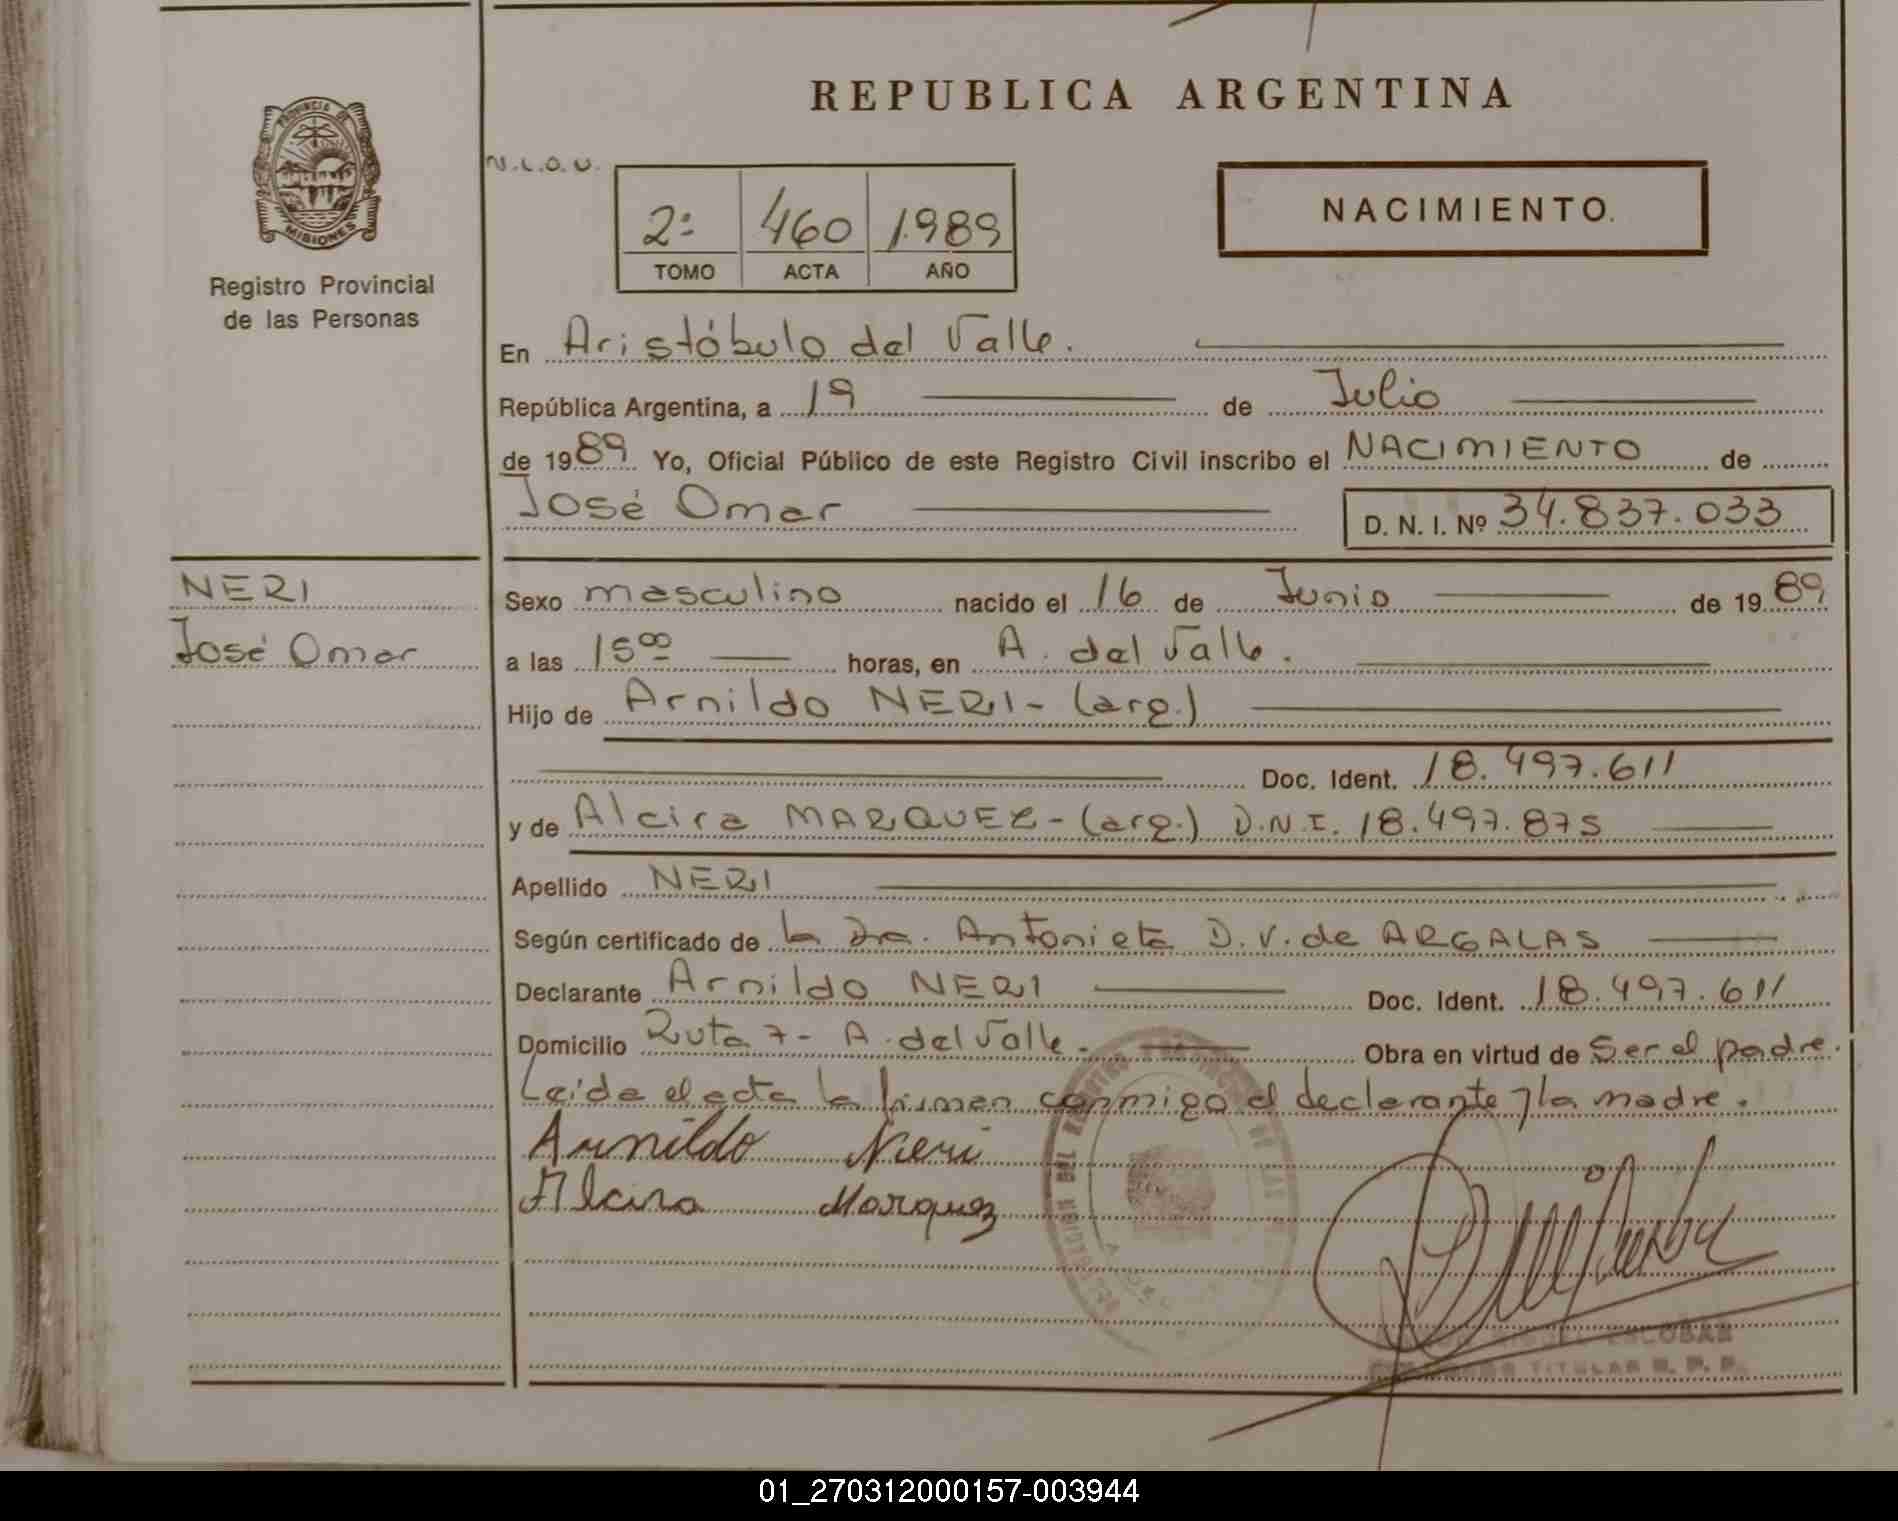 REPUBLICA ARGENTINA
PROVINCIA DE
MISIONES
Registro Provincial
de las Personas
N.L.O.U.
2º 460 1.989
TOMO ACTA AÑO
NACIMIENTO.
En Aristóbulo del Valle.
República Argentina, a 19 de Julio
de 1989 Yo, Oficial Público de este Registro Civil inscribo el NACIMIENTO de
José Omar D. N. I. Nº 34.837.033
NERI
José Omar
Sexo masculino nacido el 16 de Junio de 1989
a las 15⁰⁰ horas, en A. del Valle.
Hijo de Arnildo NERI - (arg.)
Doc. Ident. 18.497.611
y de Alcira MARQUEZ - (arg.) D.N.I. 18.497.875
Apellido NERI
Según certificado de la Dra. Antonieta D.V. de ARGALAS
Declarante Arnildo NERI Doc. Ident. 18.497.611
Domicilio Ruta 7 - A. del Valle. Obra en virtud de Ser el padre.
Leida el acta la firman conmigo el declarante y la madre.
Arnildo Neri
Alcira Marquez
ESCOBAR
TITULAR R. P. P.
01_270312000157-003944